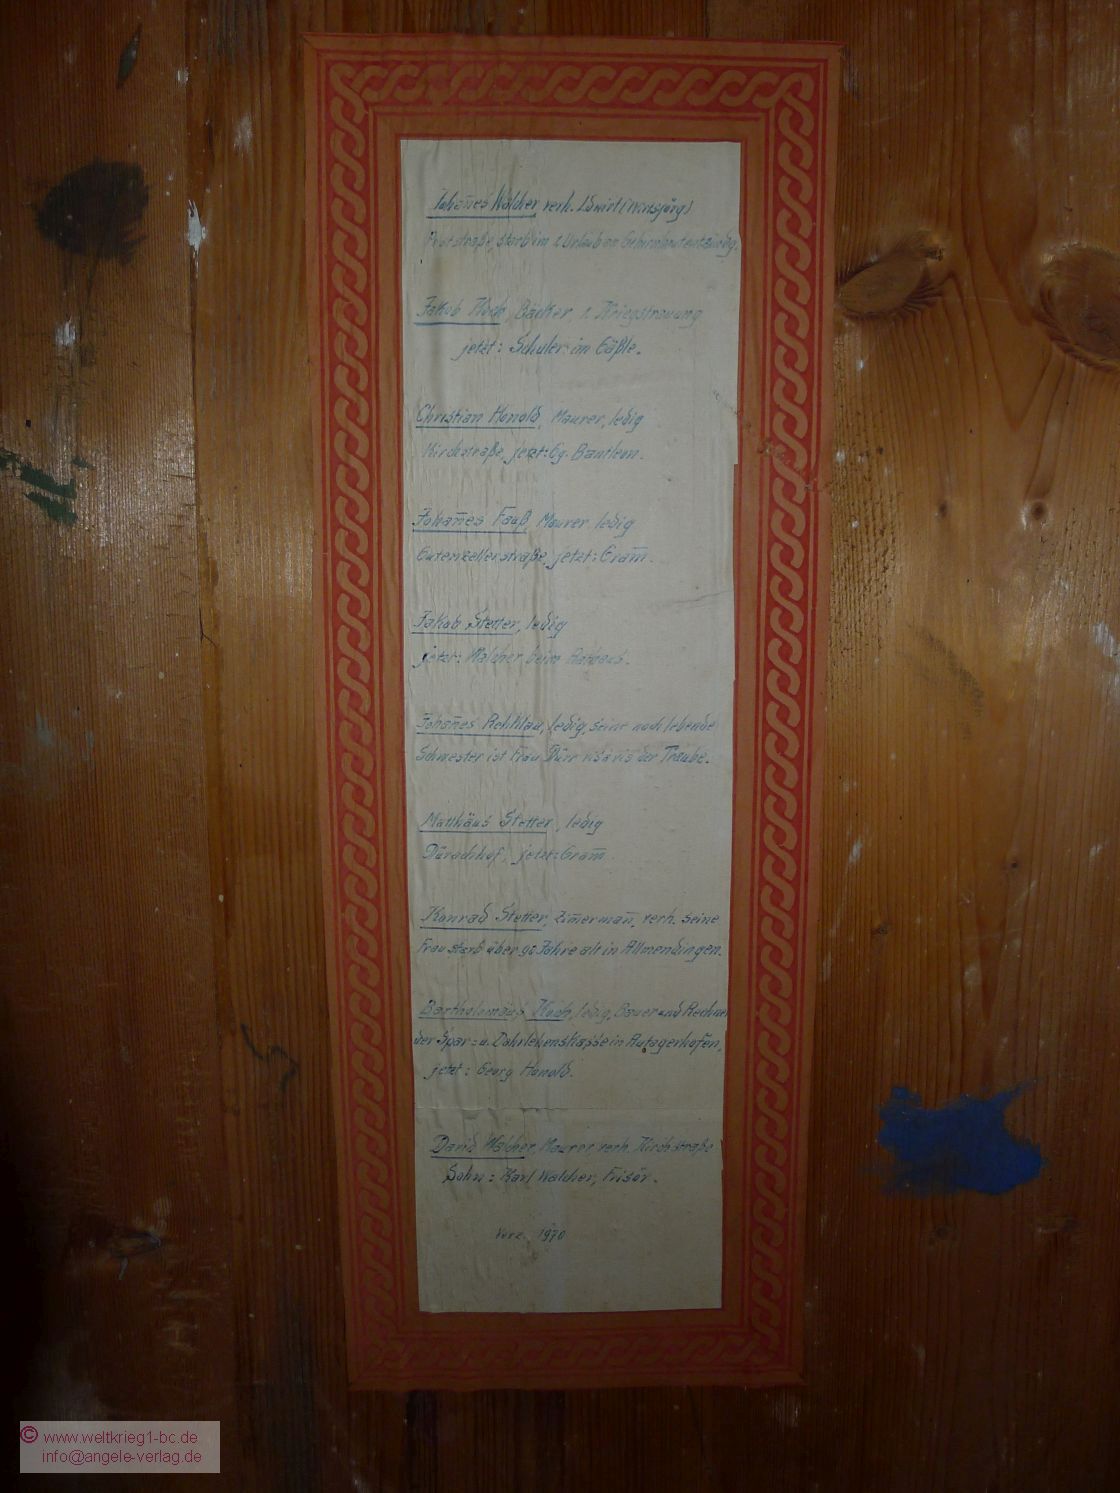 Johan̄es Walcher verh. Ldwirt (Wirtsjörg)
starb im 1. Urlaub an Gehirnhautentzündg.
Jakob Koch, Bäcker, 1. Kriegstrauung
jetzt: Schuler im Gäßle.
Christian Honold, Maurer, ledig
Kirchstraße, jetzt: Gg. Bantleon.
Johan̄es Fauß, Maurer ledig
Gutenzellerstraße, jetzt: Gram̄.
Jakob Stetter, ledig
jetzt: Walcher beim Rathaus.
Johan̄es Rehklau, ledig, seine noch lebende
Schwester ist Frau Dürr visàvis der Traube.
Matthäus Stetter, ledig
jetzt: Gram̄.
Konrad Stetter, Zim̄erman̄, verh. seine
Frau starb über 90 Jahre alt in Allmendingen.
Bartholomäus Koch, ledig, Bauer und Rechner
der Spar- u. Dahrlehenskasse in
jetzt: Georg Honold.
David Walcher, Maurer, verh. Kirchstraße
Sohn: Karl Walcher, Frisör.
1970
© www.weltkrieg1-bc.de
info@angele-verlag.de